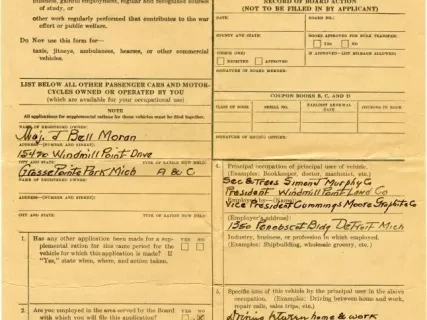 business, gainful employment, regular and recognized courses
of study, or
other work regularly performed that contributes to the war
effort or public welfare.
Do Not use this form for—
taxis, jitneys, ambulances, hearses, or other commercial
vehicles.
LIST BELOW ALL OTHER PASSENGER CARS AND MOTOR-
CYCLES OWNED OR OPERATED BY YOU
(which are available for your occupational use)
NOTE
All applications for supplemental rations for these vehicles must be filed together.
NAME OF REGISTERED OWNER:
Maj. J Bell Moran
ADDRESS—(NUMBER AND STREET):
15420 Windmill Point Drive
CITY AND STATE TYPE OF RATION NOW HELD:
Grosse Pointe Park Mich A & C
NAME OF REGISTERED OWNER:
ADDRESS—(NUMBER AND STREET):
CITY AND STATE TYPE OF RATION NOW HELD:
YES NO
1. Has any other application been made for a sup-
plemental ration for this same period for the
vehicle for which this application is made? If
"Yes," state when, where, and action taken.
YES NO
2. Are you employed in the area served by the Board
with which you will file this application?
RECORD OF BOARD ACTION
(NOT TO BE FILLED IN BY APPLICANT)
DATE BOARD NO.
COUNTY AND STATE BOARD APPROVED FOR BULK TRANSFER:
YES NO
CHECK ONE: IF APPROVED—LIST MILEAGE ALLOWED:
REJECTED APPROVED
SIGNATURE OF BOARD MEMBER:
COUPON BOOKS B, C, AND D
CLASS OF BOOK SERIAL NO. EARLIEST RENEWAL DATE COUPONS IN BOOK
SIGNATURE OF ISSUING OFFICER:
4. Principal occupation of principal user of vehicle.
(Examples: Bookkeeper, doctor, machinist, etc.)
Sec & Treas Simon J Murphy Co
President Windmill Point Land Co
Employed by—(Name):
Vice President Cummings Moore Graphite Co
(Employer's address):
1350 Penobscot Bldg Detroit Mich
Industry, business, or profession in which employed.
(Examples: Shipbuilding, wholesale grocery, etc.)
5. Specific uses of this vehicle by the principal user in the above
occupation. (Examples: Driving between home and work,
repair calls, sales trips, etc.)
Driving btween home & work